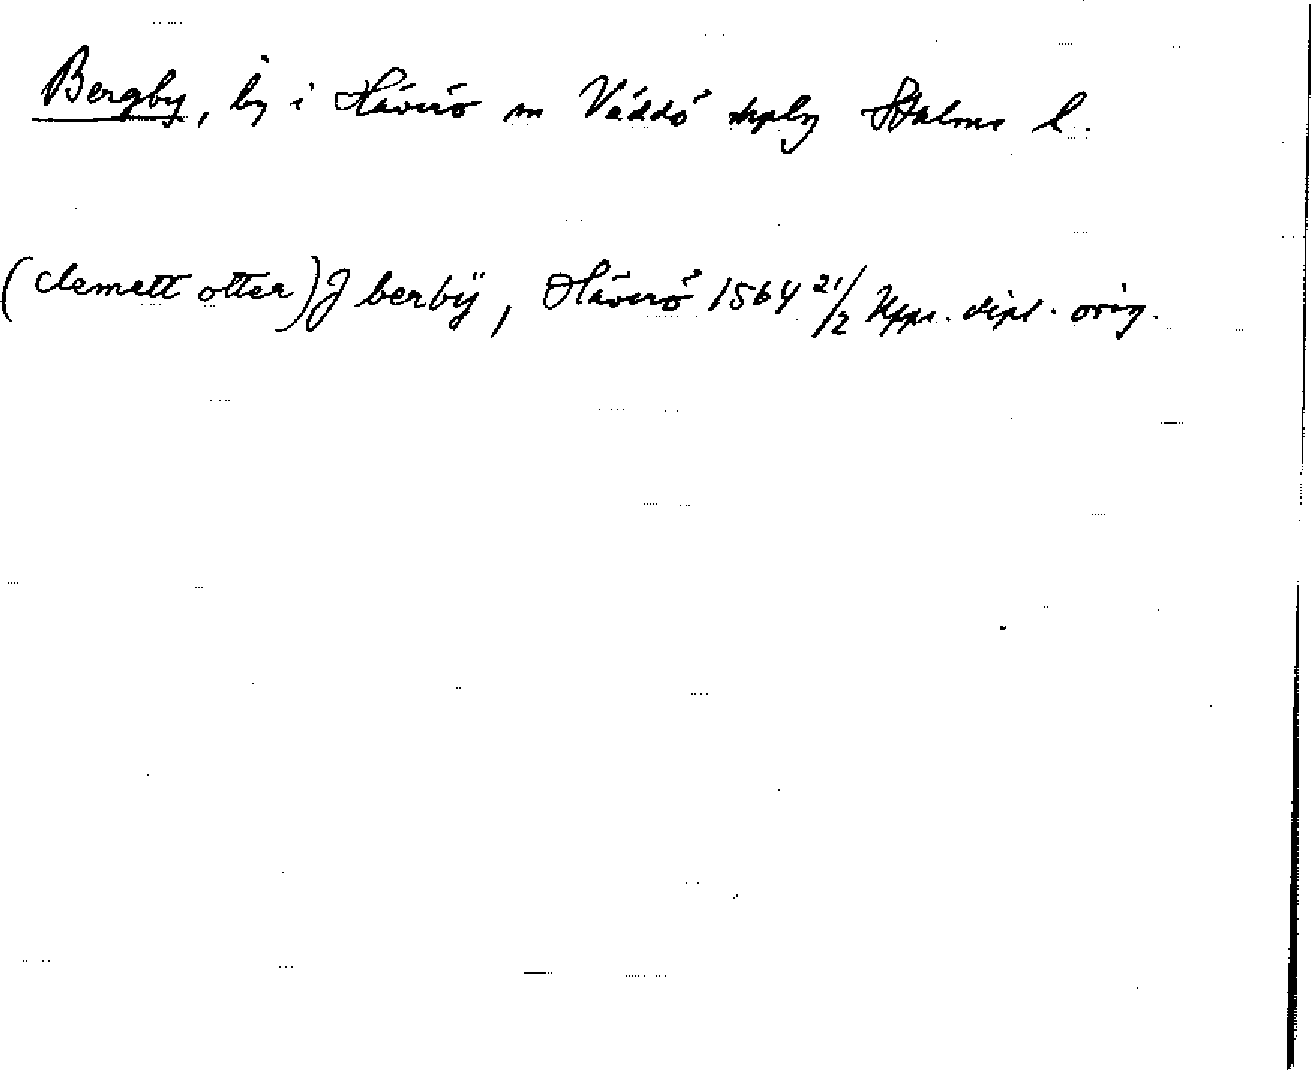 Bergby, by i Häverö sn Väddö skplg Sthlms l.
(clemett otter) J berbÿ, Häverö 1564 21/2 Upps. dipl. orig.